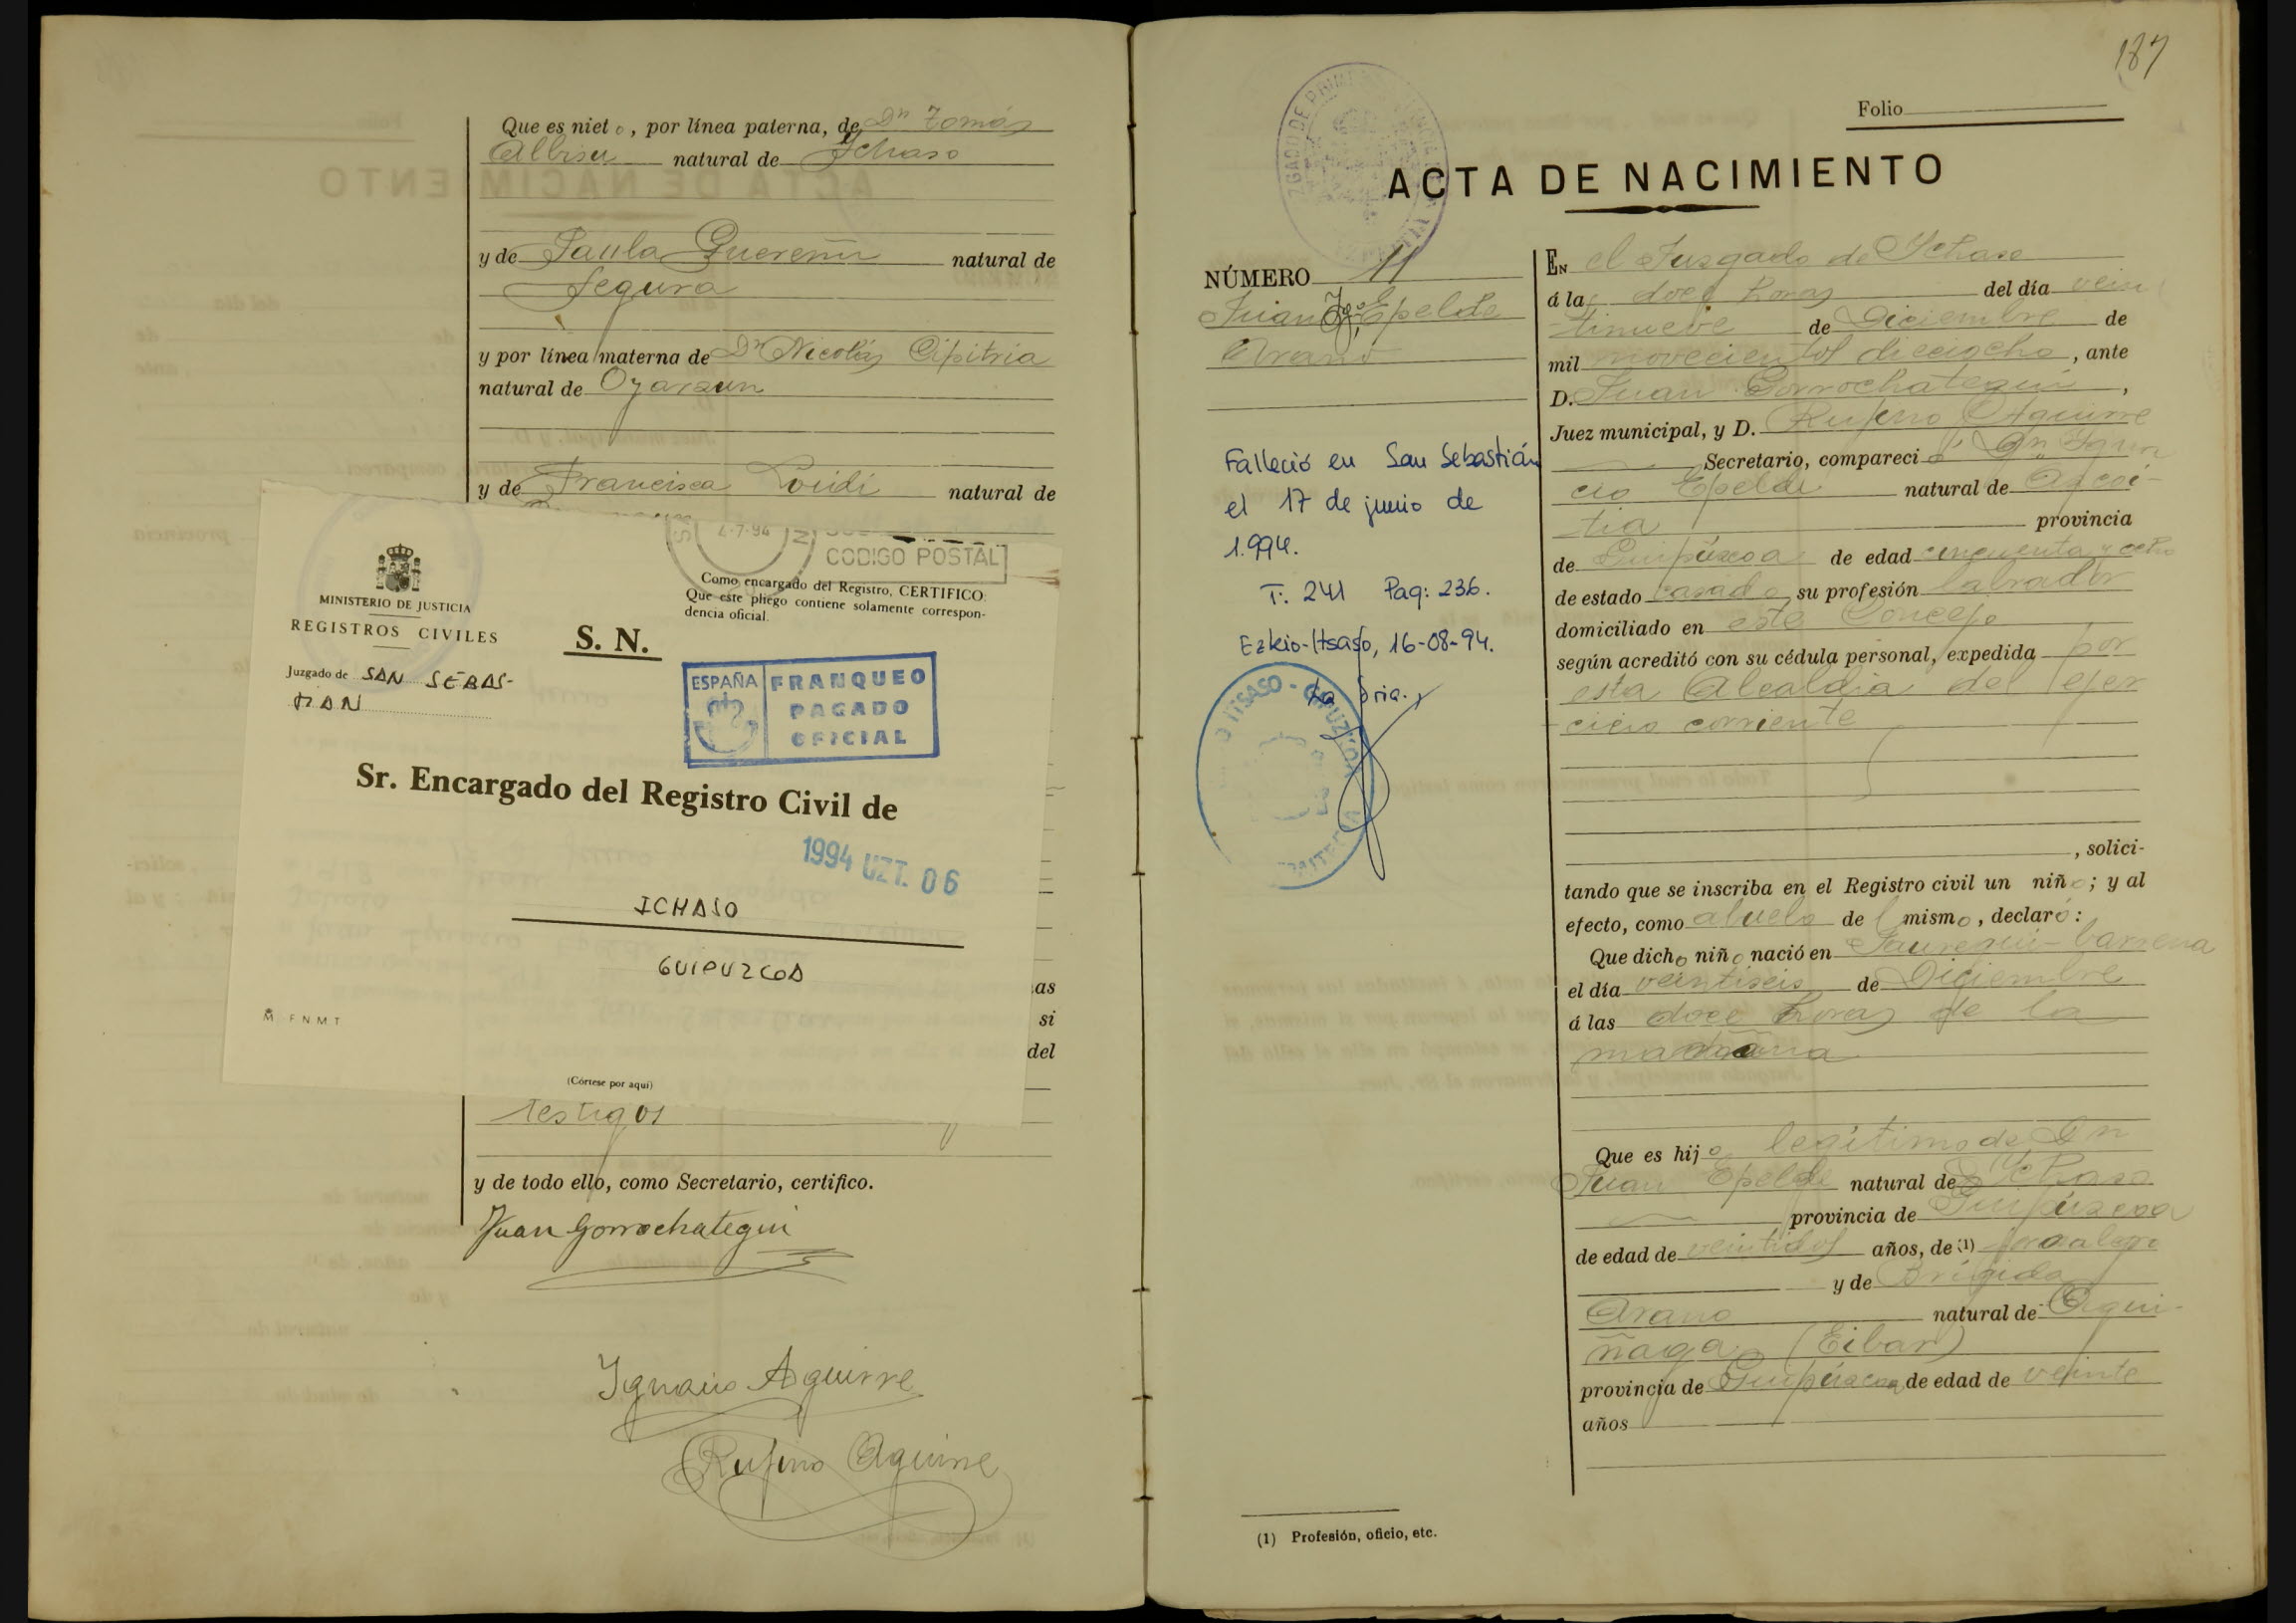 Que es nieto, por línea paterna, de Dn Tomás
Albisu natural de Ichaso
y de Paula Guereñu natural de
Segura
y por línea materna de Dn Nicolás Cipitria
natural de Oyarzun
y de Francisca Loidi natural de
2-7-94
CODIGO POSTAL
MINISTERIO DE JUSTICIA
REGISTROS CIVILES
Como encargado del Registro, CERTIFICO:
Que este pliego contiene solamente correspon-
dencia oficial.
S. N.
Juzgado de SAN SEBAS-
TIAN
ESPAÑA FRANQUEO
PAGADO
OFICIAL
Sr. Encargado del Registro Civil de
1994 UZT. 06
ICHASO
GUIPUZCOA
as
si
del
F N M T
(Córtese por aquí)
testigos
y de todo ello, como Secretario, certifico.
Juan Gorrochategui
Ignacio Aguirre
Rufino Aguirre
187
Folio
ACTA DE NACIMIENTO
NÚMERO 11
Juan Igo Epelde
Arano
Falleció en San Sebastián
el 17 de junio de
1.994.
T: 241 Pag: 236.
Ezkio-Itsaso, 16-08-94.
La Sria.
En el Juzgado de Ichaso
á las doce horas del día vein
tinueve de Diciembre de
mil novecientos dieciocho, ante
D. Juan Gorrochategui,
Juez municipal, y D. Rufino Aguirre
Secretario, compareció Dn Igna
cio Epelde natural de Azcoi-
tia provincia
de Guipúzcoa de edad cincuenta y ocho
de estado casado su profesión labrador
domiciliado en este Concejo
según acreditó con su cédula personal, expedida por
esta Alcaldía del ejer
cicio corriente
, solici-
tando que se inscriba en el Registro civil un niño; y al
efecto, como abuelo del mismo, declaró:
Que dicho niño nació en Jauregui-barrena
el día veintiseis de Diciembre
á las doce horas de la
mañana
Que es hijo legítimo de Dn
Juan Epelde natural de Ichaso
provincia de Guipúzcoa
de edad de veintidos años, de (1)
y de Brígida
Arano natural de Agui-
ñaga (Eibar)
provincia de Guipúzcoa de edad de veinte
años
(1) Profesión, oficio, etc.